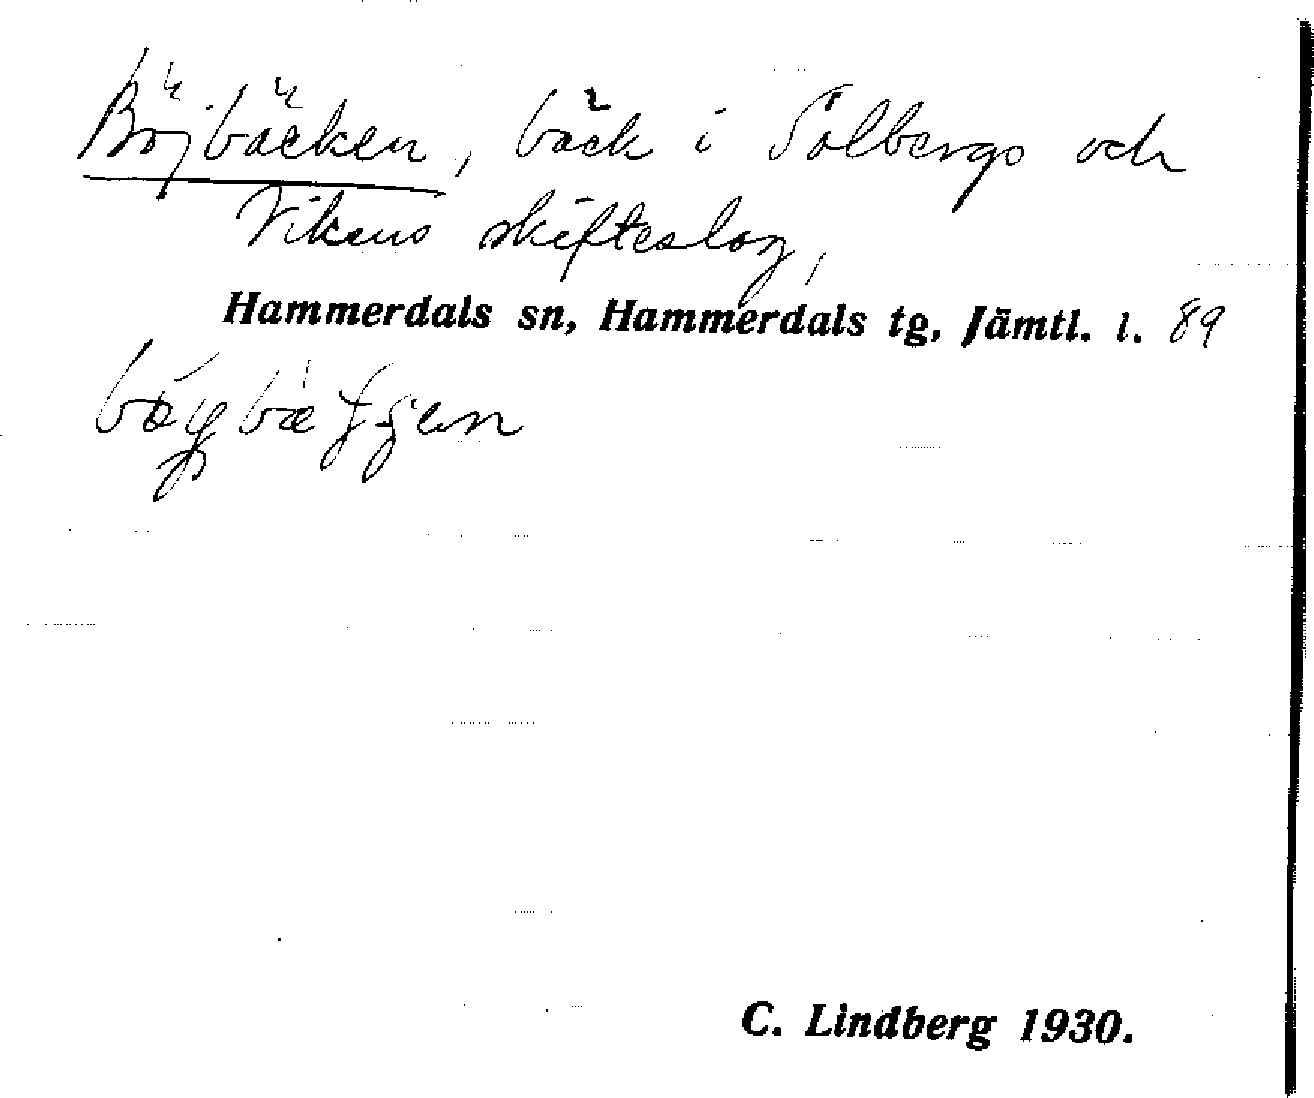 Böjbäcken, bäck i Solbergs och
Vikens skifteslag,
Hammerdals sn, Hammerdals tg, Jämtl. l. 89
C. Lindberg 1930.